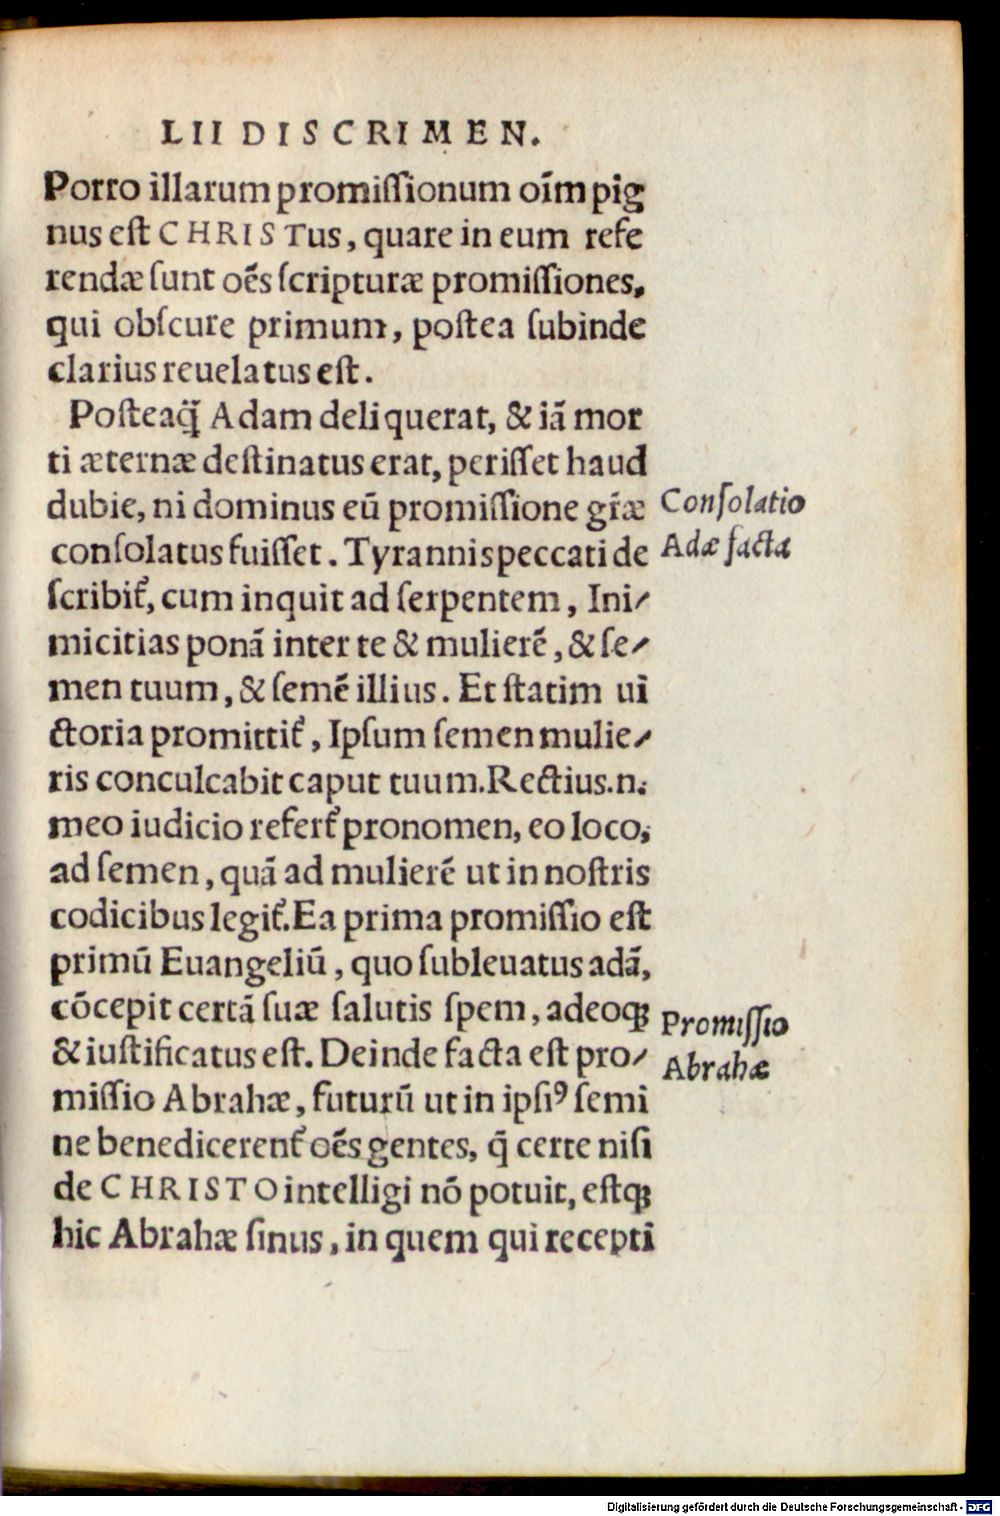 LII DISCRIMEN.
Porro illarum promiſſionum oīm pig
nus eſt CHRISTus, quare in eum refe
rendæ ſunt oēs ſcripturæ promiſſiones,
qui obſcure primum, poſtea ſubinde
clarius reuelatus eſt.
Poſteaq̃ Adam deliquerat, & iã mor
ti æternæ deſtinatus erat, periſſet haud
dubie, ni dominus eũ promiſſione gr̃æ
conſolatus fuiſſet. Tyrannis peccati de
ſcribit᷑, cum inquit ad ſerpentem, Ini⸗
micitias ponã inter te & mulierẽ, & ſe⸗
men tuum, & ſemẽ illius. Et ſtatim ui
ctoria promittit᷑, Ipſum ſemen mulie⸗
ris conculcabit caput tuum. Rectius.n.
meo iudicio refert᷑ pronomen, eo loco,
ad ſemen, quã ad mulierẽ ut in noſtris
codicibus legit᷑. Ea prima promiſſio eſt
primũ Euangeliũ, quo ſubleuatus adã,
cõcepit certã ſuæ ſalutis ſpem, adeoq;
& iuſtificatus eſt. Deinde facta eſt pro⸗
miſſio Abrahæ, futurũ ut in ipſiꝰ ſemi
ne benedicerent᷑ oẽs gentes, q̃ certe niſi
de CHRISTO intelligi nõ potuit, eſtq;
hic Abrahæ ſinus, in quem qui recepti
Conſolatio
Adæ facta
Promiſſio
Abrahæ
Digitalisierung gefördert durch die Deutsche Forschungsgemeinschaft - DFG